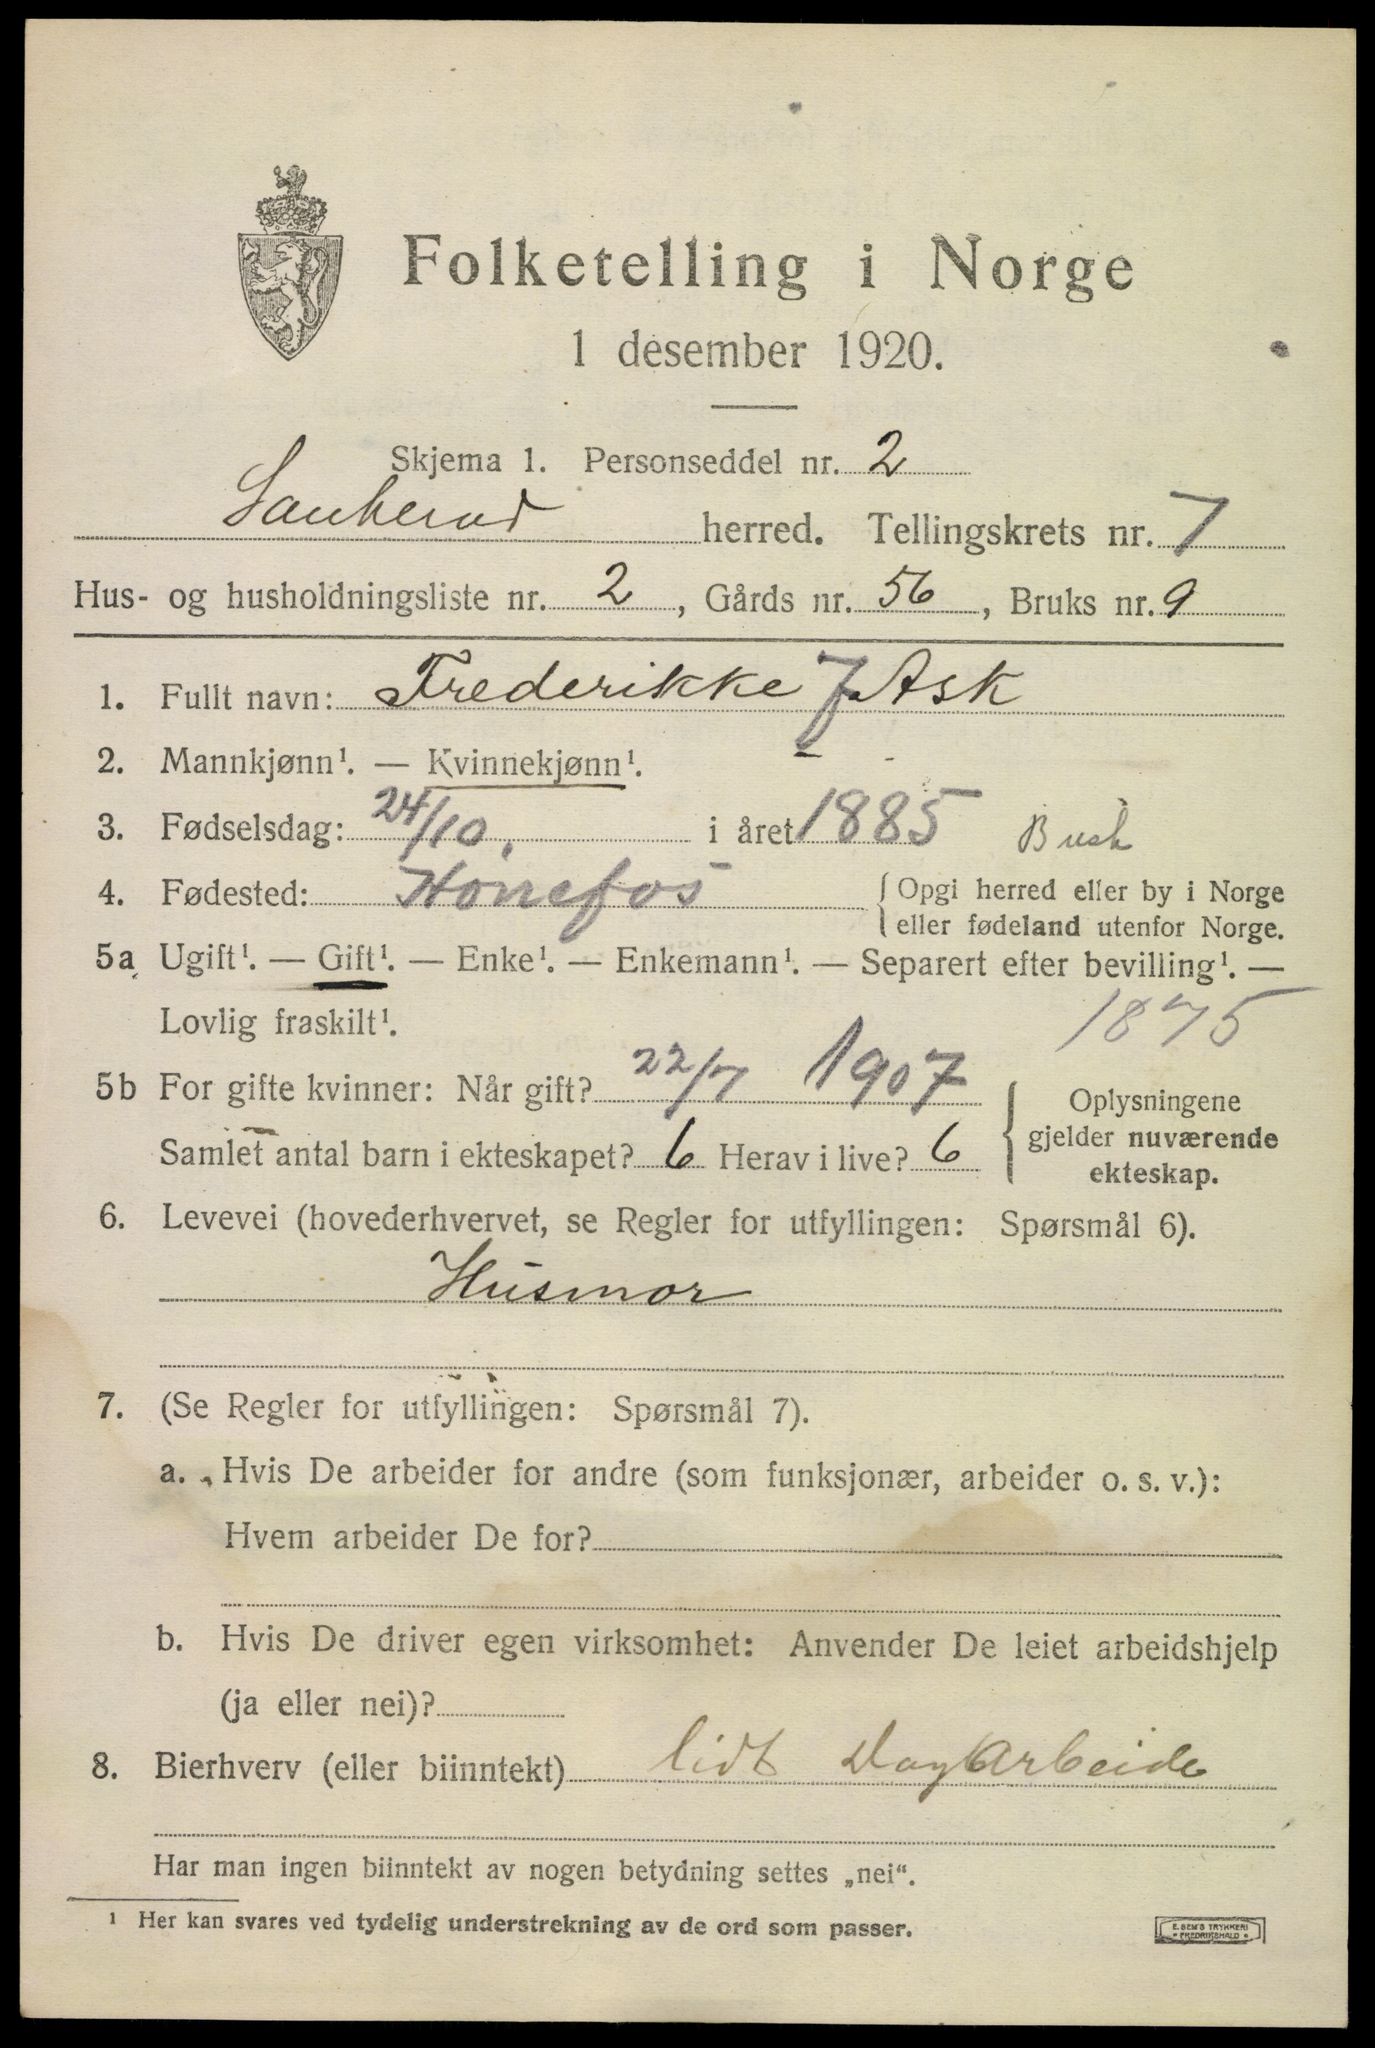 Folketelling i Norge
1 desember 1920.
Skjema 1. Personseddel nr. 2
Sauherad herred. Tellingskrets nr. 7
Hus- og husholdningsliste nr. 2, Gårds nr. 56, Bruks nr. 9
1. Fullt navn: Frederikke J. Ask
2. Mannkjønn¹. — Kvinnekjønn¹.
3. Fødselsdag: 24/10. i året 1885 Busk
4. Fødested: Hønefos {Opgi herred eller by i Norge
eller fødeland utenfor Norge.
5a Ugift¹. — Gift¹. — Enke¹. — Enkemann¹. — Separert efter bevilling¹. —
Lovlig fraskilt¹. 1875
5b For gifte kvinner: Når gift? 22/7 1907 { Oplysningene
gjelder nuværende
ekteskap.
Samlet antal barn i ekteskapet? 6 Herav i live? 6
6. Levevei (hovederhvervet, se Regler for utfyllingen: Spørsmål 6).
Husmor
7. (Se Regler for utfyllingen: Spørsmål 7).
a. Hvis De arbeider for andre (som funksjonær, arbeider o. s. v.):
Hvem arbeider De for?
b. Hvis De driver egen virksomhet: Anvender De leiet arbeidshjelp
(ja eller nei)?
8. Bierhverv (eller biinntekt) lidt Dagarbeide
Har man ingen biinntekt av nogen betydning settes „nei“.
¹ Her kan svares ved tydelig understrekning av de ord som passer.
E. SEM'S TRYKKERI
• FREDRIKSHALD •